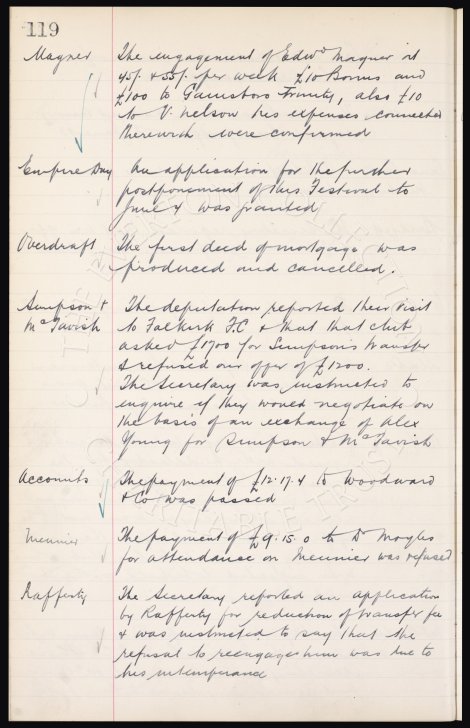 119
Magner The engagement of Edwd Magner at
45/- & 55/- per week £10 Bonus and
£100 to Gainsboro Trinity, also £10
to V. Nelson his expenses connected
therewith were confirmed
Empire Day An application for the further
postponement of this Festival to
June 4 was granted
Overdraft The first deed of mortgage was
produced and cancelled.
Simpson & The deputation reported their visit
McTavish to Falkirk F.C. & that that club
asked £1700 for Simpson's transfer
& refused our offer of £1200.
The Secretary was instructed to
enquire if they would negotiate on
the basis of an exchange of Alex
Young for Simpson & McTavish
Accounts The payment of £12.17.4 to Woodward
& Co was passed
Meunier The payment of £9.15.0 to Dr Moyles
for attendance on Meunier was refused
Rafferty The Secretary reported an application
by Rafferty for reduction of transfer fee
& was instructed to say that the
refusal to reengage him was due to
his intemperance